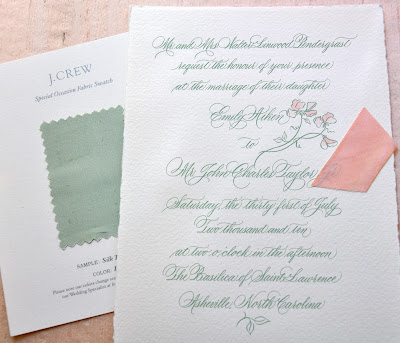 J.CREW
Special Occasion Fabric Swatch
SAMPLE: Silk
COLOR:
Please note our colors change
our Wedding Specialist at
Mr. and Mrs. Walter Linwood Pendergrast
request the honour of your presence
at the marriage of their daughter
Emily Aiken
to
Mr. John Charles Taylor, Jr.
Saturday, the thirty first of July
Two thousand and ten
at two o'clock in the afternoon
The Basilica of Saint Lawrence
Asheville, North Carolina